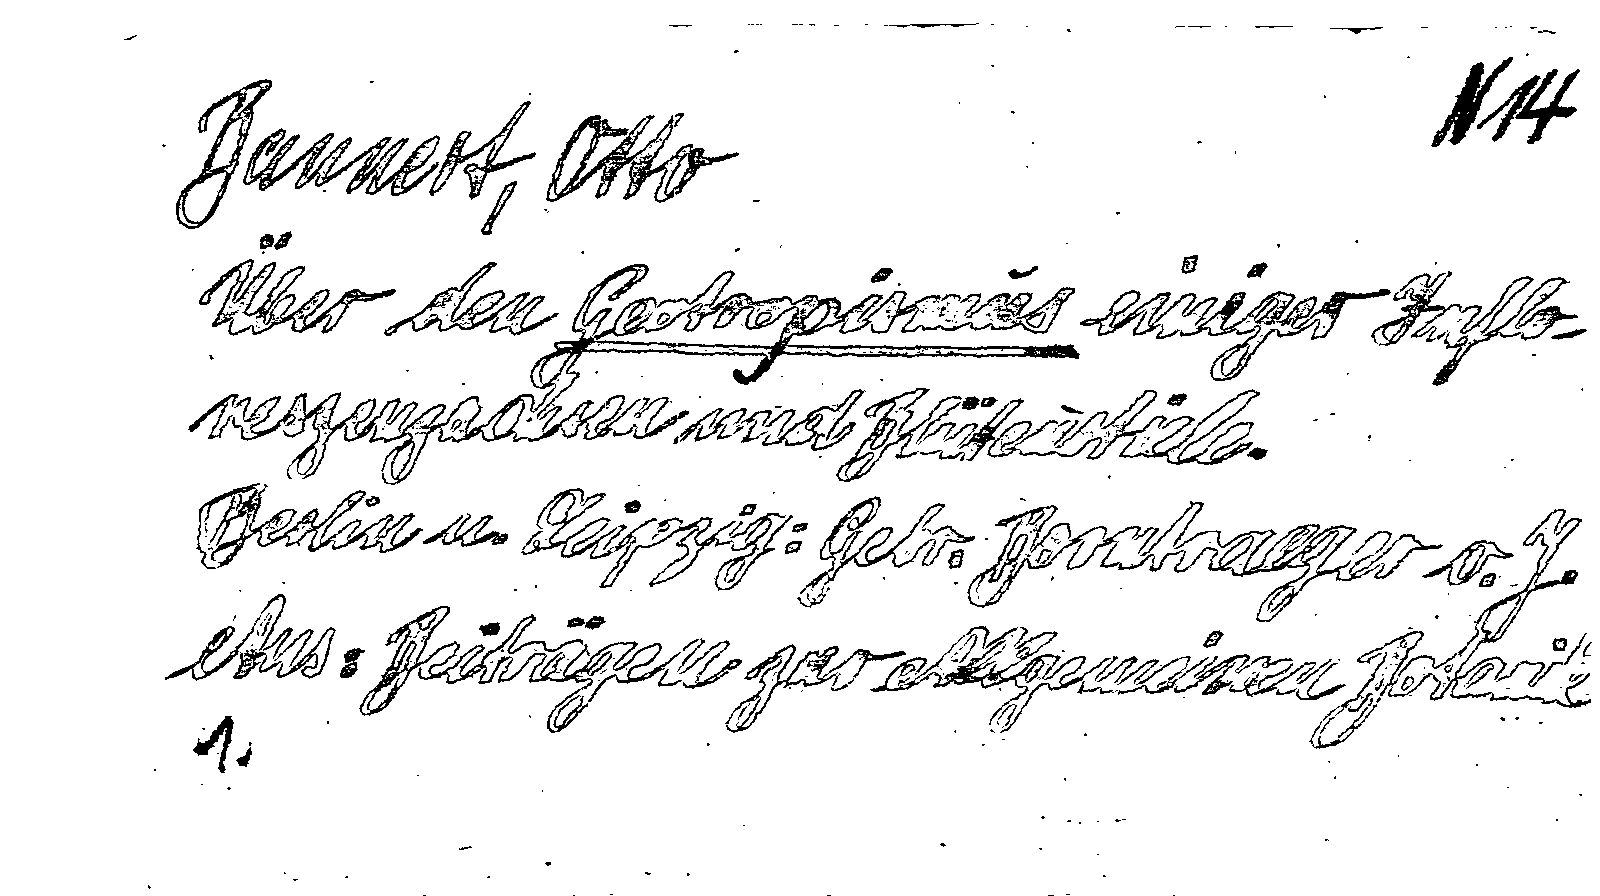 N 14
Bannert, Otto
Über den Geotropismus einiger Inflo-
reszenzachsen und Blütenstiele.
Berlin u. Leipzig: Gebr. Borntraeger o. J.
Aus: Beiträgen zur Allgemeinen Botanik
1.